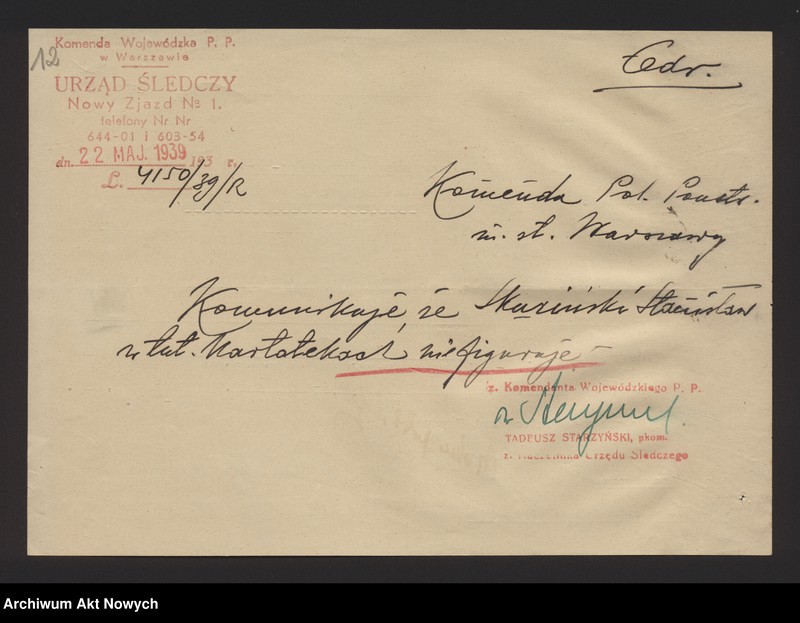 12
Komenda Wojewódzka P. P.
w Warszawie
URZĄD ŚLEDCZY
Nowy Zjazd № 1.
telefony Nr Nr
644-01 i 603-54
dn. 22 MAJ. 1939 193 r.
L. 4150/39/R
Odr.
Komenda Pol. Państw.
m. st. Warszawy
Komunikuję że Skaziński Stanisław
w tut. Kartotekach nie figuruje
z. Komendanta Wojewódzkiego P. P.
TADEUSZ STARZYŃSKI, pkom.
z. Naczelnika Urzędu Śledczego
Archiwum Akt Nowych